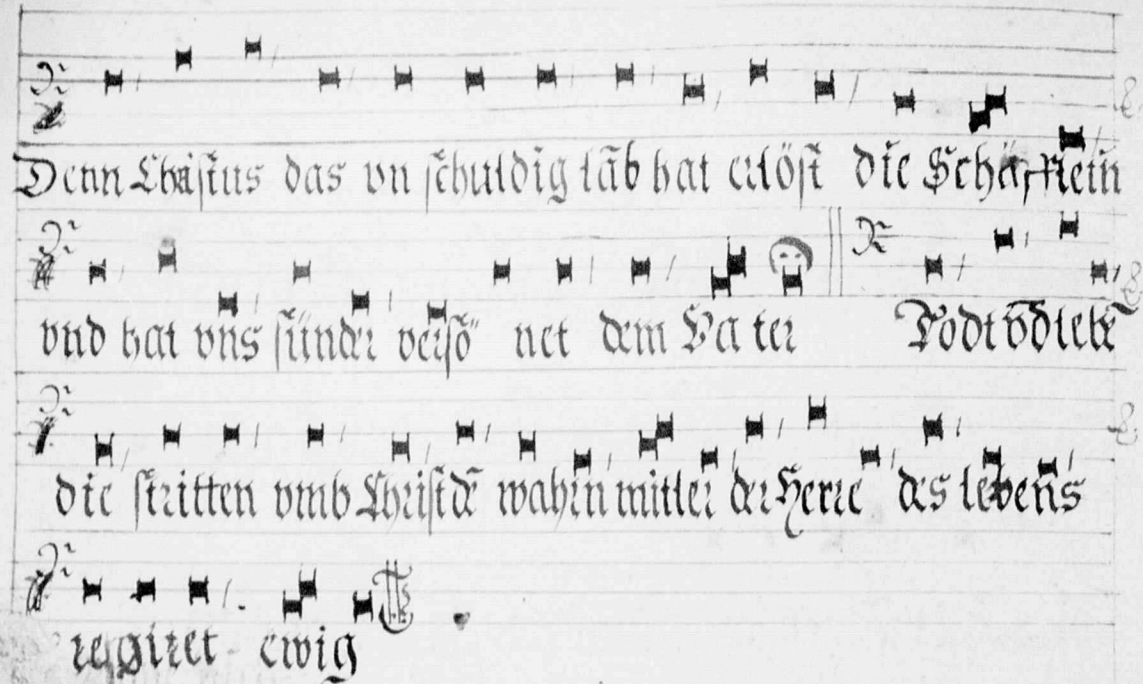 Denn Christus das vn schuldig lãb hat erlöst die Schäfflein
vnd hat vns sünder versö net dem Va ter Todt vñ lebẽ
die stritten vmb Christẽ wahrn mitler der Herre des lebens
regiret ewig